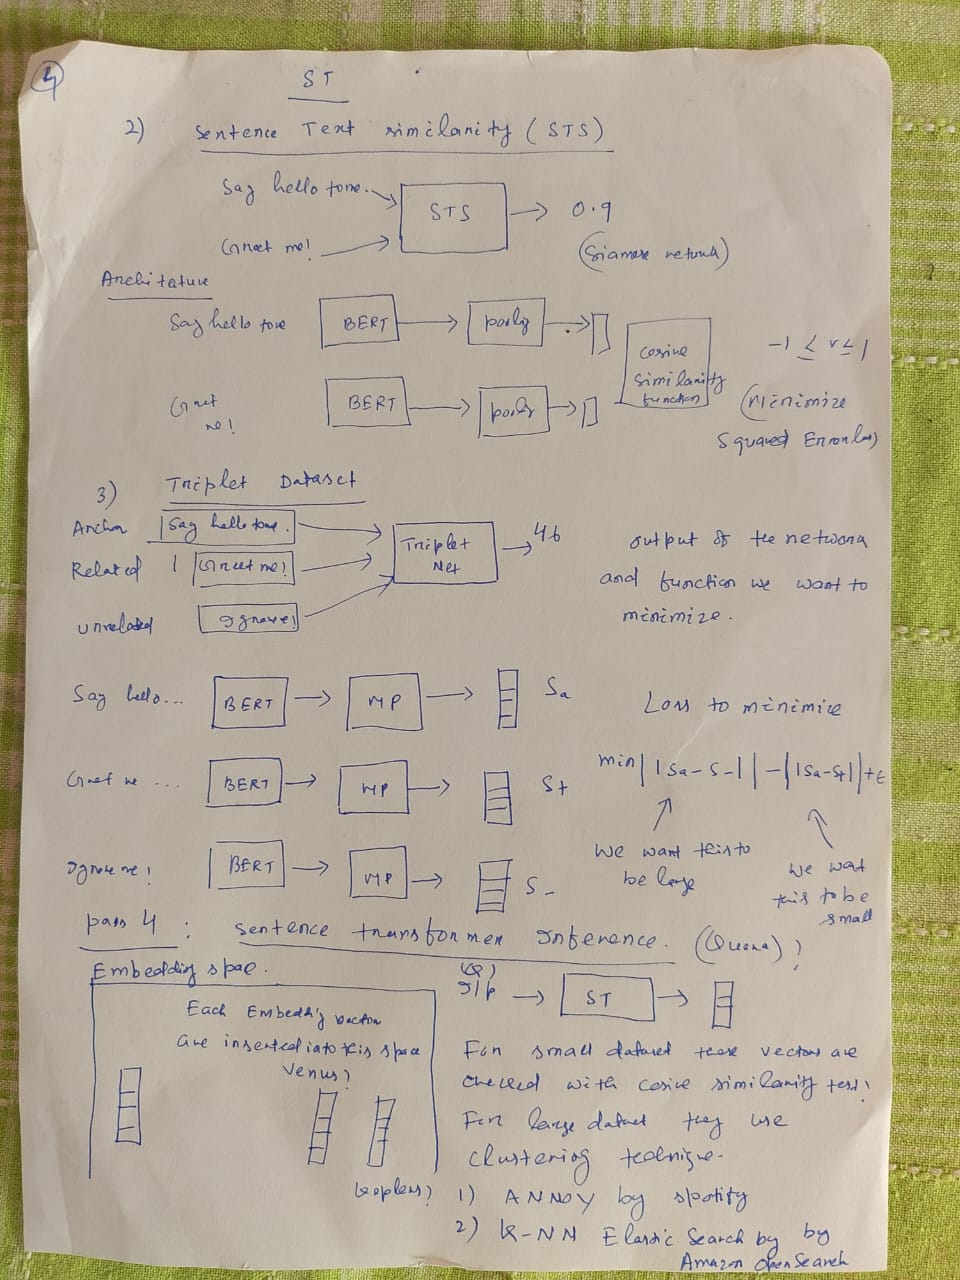 4
ST
2) Sentence Text similarity (STS)
Say hello to me.
STS → 0.9
Greet me!
(Siamese network)
Architature
Say hello to me
BERT → pooling →
-1 ≤ v ≤ 1
Cosine
similarity
function
Greet
me!
BERT → pooling →
(Minimize
Squared Error loss)
3) Triplet Dataset
Anchor Say hello to me.
Related Greet me!
unrelated Ignore!
Triplet
Net
→ 46
output of the network
and function we want to
minimize.
Say hello...
BERT → MP → Sa
Loss to minimize
Greet me ...
BERT → MP → S+
min||Sa-S-||-||Sa-S+||+ε
We want this to
be large
We want
this to be
small
Ignore me!
BERT → MP → S-
pass 4 : Sentence transformer Inference.
Embedding spae.
Each Embeddig vector
are inserted into this space
Venus?
Kepler?
(Q)
I/p → ST →
For small dataset these vectors are
checked with cosine similarity test!
For large dataset they use
clustering technique.
1) ANNOY by spotify
2) K-NN Elastic Search by by
Amazon OpenSearch